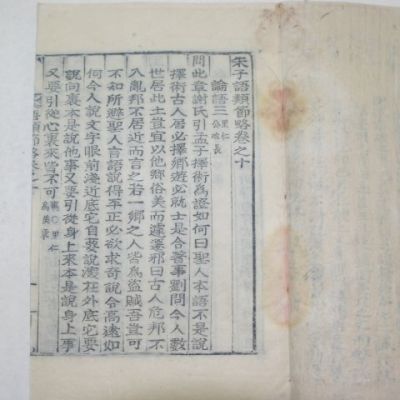 朱子語類節略卷之十
論語三 里仁 公冶長
問此章謝氏引孟子擇術為證如何曰聖人本語不是說
擇術古人居必擇鄉遊必就士是合著事劉問今人數
世居此土豈宜以他鄉俗美而遽遷邪曰古人危邦不
入亂邦不居近而言之若一鄉之人皆為盜賊吾豈可
不知所避聖人言語說得平正必欲求奇說令高遠如
何今人說文字眼前淺近底他自要說深在外底他要
說向裏本是說他事又要引從身上來本是說身上事
又要引從心裏來皆不可 里仁為美章